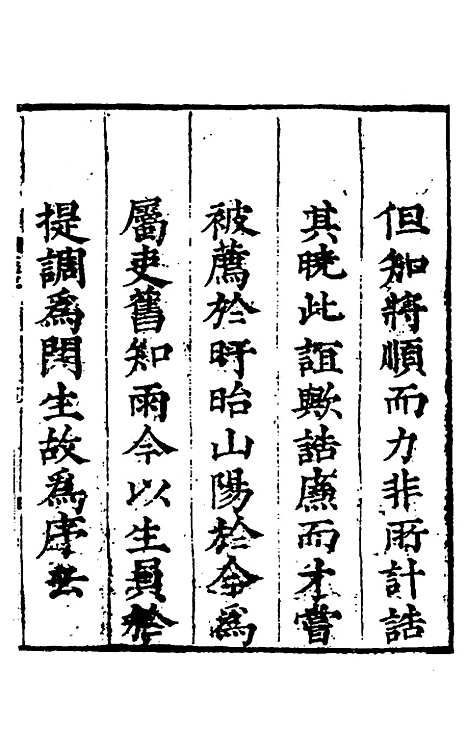 但知將順而力非所計誥
其曉此誼歟誥廉而才嘗
被薦於盱眙山陽於今爲
屬吏舊知雨今以生員於
提調爲門生故爲序云